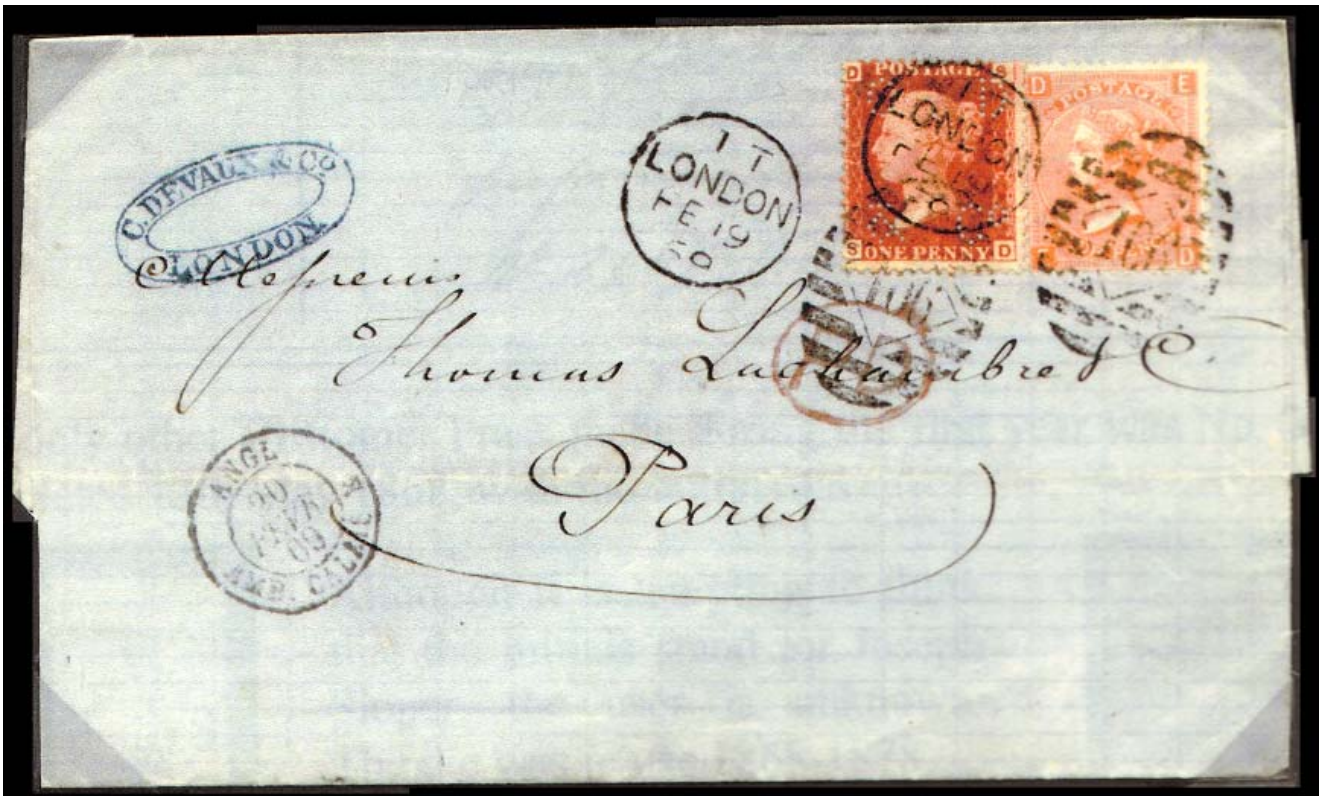 C. DEVAUX & Co
LONDON
1 T
LONDON
FE 19
69
D
POSTAGE
S
S
ONE PENNY
D
LONDON
FE 19
D
POSTAGE
E
D
106
106
PD
Messieurs
Thomas Lachambre & C.
Paris
ANGL.
20
FEVR
69
AMB. CALAIS